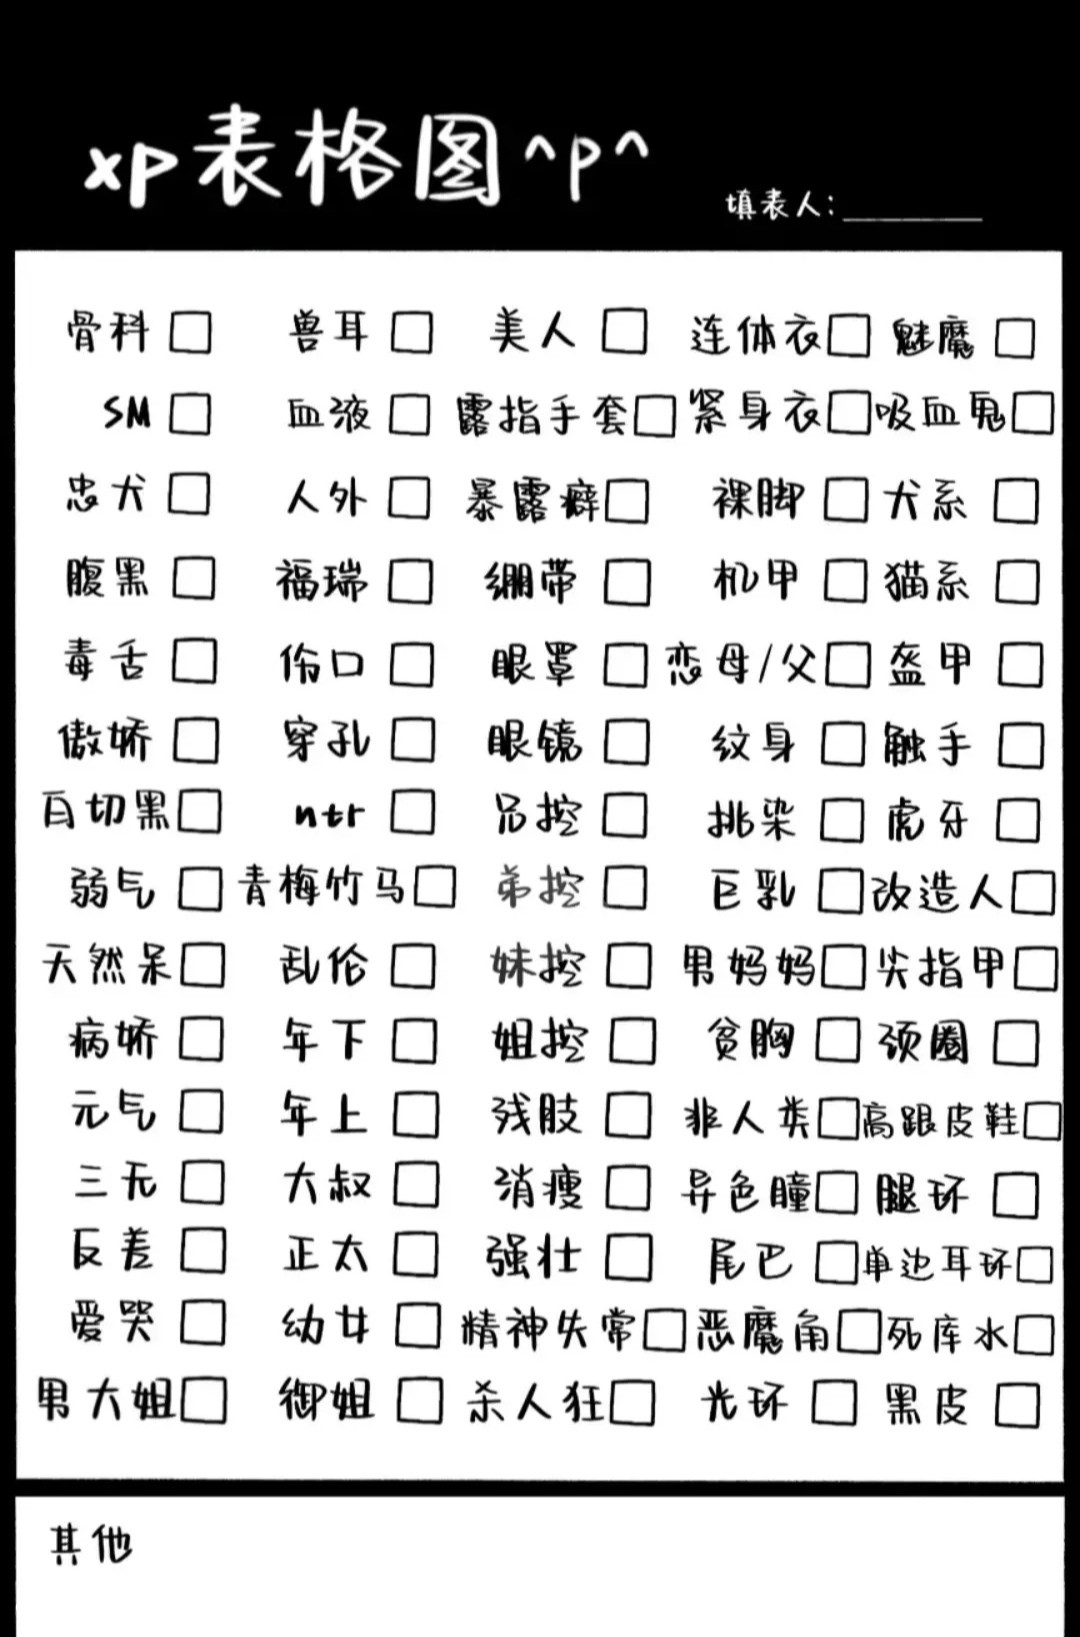 xp表格图^p^
填表人:________
骨科 兽耳 美人 连体衣 魅魔
SM 血液 露指手套 紧身衣 吸血鬼
忠犬 人外 暴露癖 裸脚 犬系
腹黑 福瑞 绷带 机甲 猫系
毒舌 伤口 眼罩 恋母/父 盔甲
傲娇 穿孔 眼镜 纹身 触手
白切黑 ntr 兄控 挑染 虎牙
弱气 青梅竹马 弟控 巨乳 改造人
天然呆 乱伦 妹控 男妈妈 尖指甲
病娇 年下 姐控 贫胸 颈圈
元气 年上 残肢 非人类 高跟皮鞋
三无 大叔 消瘦 异色瞳 腿环
反差 正太 强壮 尾巴 单边耳环
爱哭 幼女 精神失常 恶魔角 死库水
男大姐 御姐 杀人狂 光环 黑皮
其他